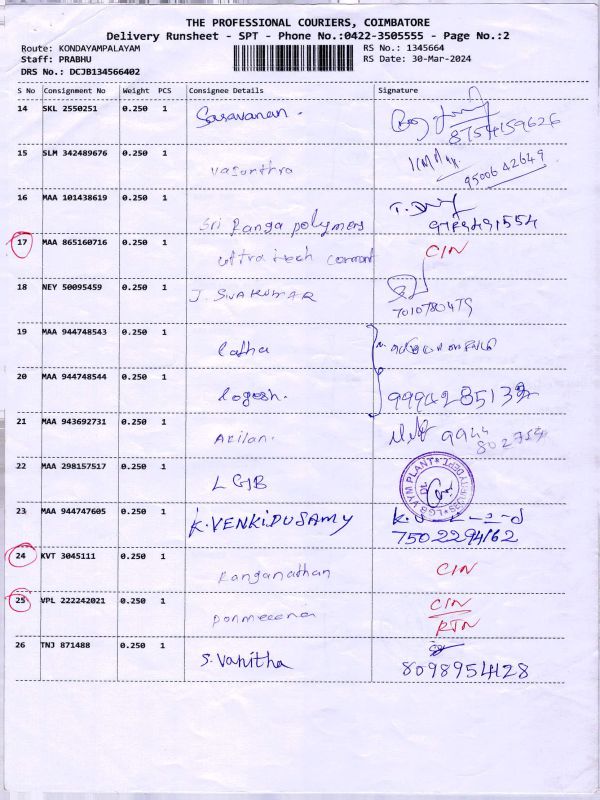 THE PROFESSIONAL COURIERS, COIMBATORE
Delivery Runsheet - SPT - Phone No.:0422-3505555 - Page No.:2
Route: KONDAYAMPALAYAM RS No.: 1345664
Staff: PRABHU RS Date: 30-Mar-2024
DRS No.: DCJB134566402
S No Consignment No Weight PCS Consignee Details Signature
14 SKL 2550251 0.250 1 Saravanan.
8754159626
15 SLM 342489676 0.250 1
vasanthra 9500642649
16 MAA 101438619 0.250 1
Sri Ranga polymers
17 MAA 865160716 0.250 1 CIN
ultra tech cement
18 NEY 50095459 0.250 1 J. SIVAKUMAR
7010780479
19 MAA 944748543 0.250 1
Latha
20 MAA 944748544 0.250 1
logesh.
21 MAA 943692731 0.250 1
Akilan. 9944
22 MAA 298157517 0.250 1
LGB LGB VYM PLANT
23 MAA 944747605 0.250 1 K. VENKIDUSAMY
7502294162
24 KVT 3045111 0.250 1
Ranganathan CIN
25 VPL 222242021 0.250 1 CIN
ponmeena RTN
26 TNJ 871488 0.250 1
S. Vanitha 8098954128